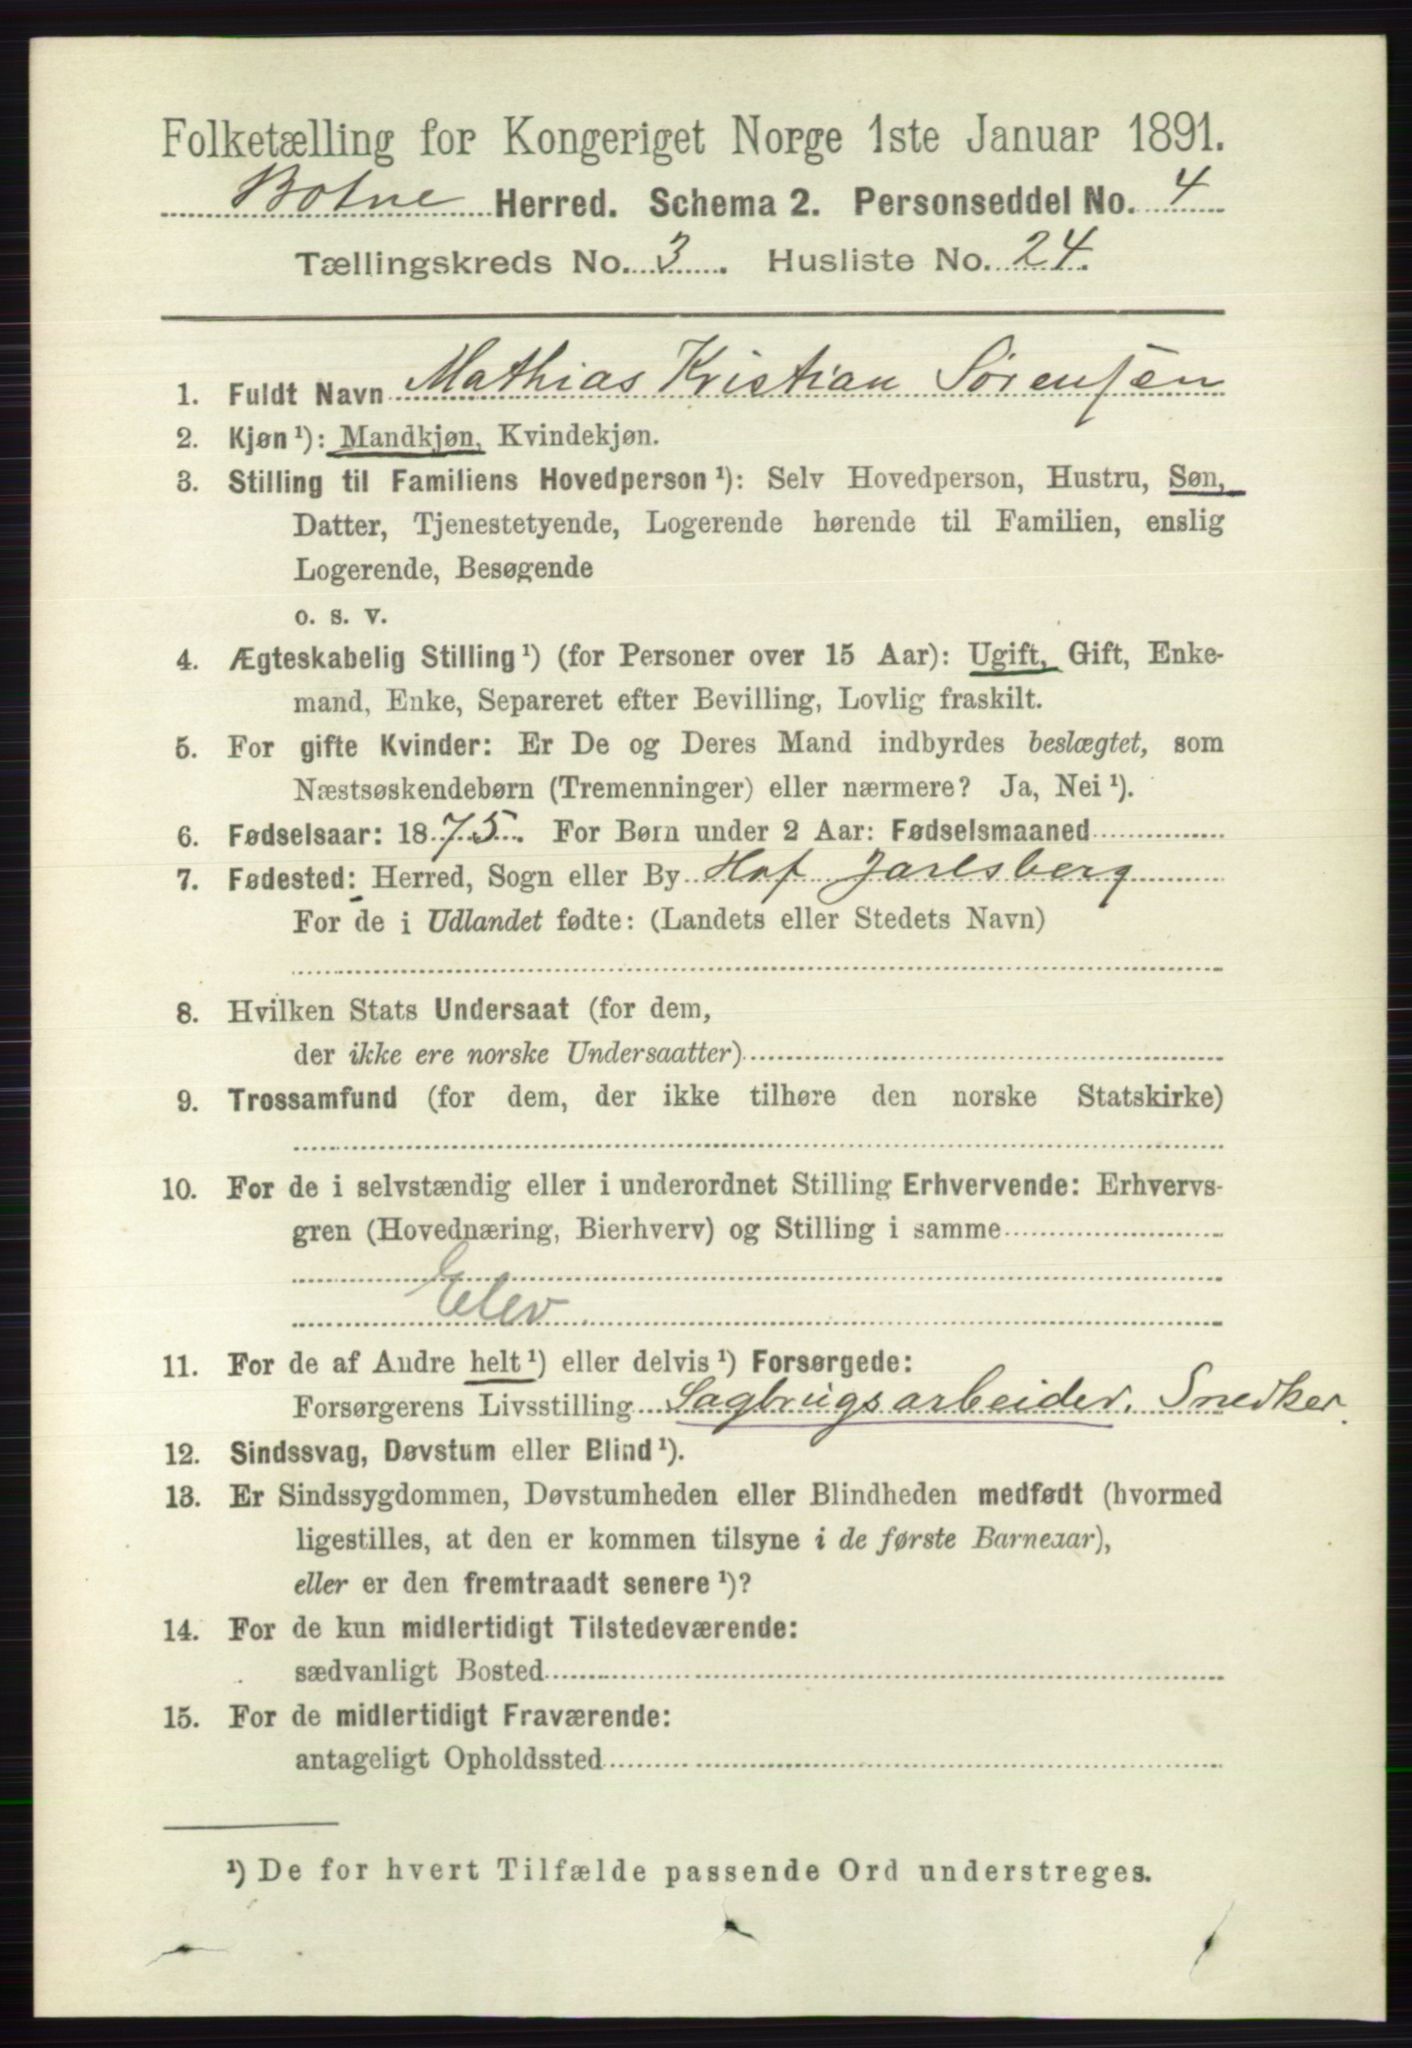 Folketælling for Kongeriget Norge 1ste Januar 1891.
Botne Herred. Schema 2. Personseddel No. 4
Tællingskreds No. 3. Husliste No. 24.
1. Fuldt Navn Mathias Kristian Sørensen
2. Kjøn ¹): Mandkjøn, Kvindekjøn.
3. Stilling til Familiens Hovedperson ¹): Selv Hovedperson, Hustru, Søn,
Datter, Tjenestetyende, Logerende hørende til Familien, enslig
Logerende, Besøgende
o. s. v.
4. Ægteskabelig Stilling ¹) (for Personer over 15 Aar): Ugift, Gift, Enke-
mand, Enke, Separeret efter Bevilling, Lovlig fraskilt.
5. For gifte Kvinder: Er De og Deres Mand indbyrdes beslægtet, som
Næstsøskendebørn (Tremenninger) eller nærmere? Ja, Nei ¹).
6. Fødselsaar: 1875. For Børn under 2 Aar: Fødselsmaaned
7. Fødested: Herred, Sogn eller By Hof Jarlsberg
For de i Udlandet fødte: (Landets eller Stedets Navn)
8. Hvilken Stats Undersaat (for dem,
der ikke ere norske Undersaatter)
9. Trossamfund (for dem, der ikke tilhøre den norske Statskirke)
10. For de i selvstændig eller i underordnet Stilling Erhvervende: Erhvervs-
gren (Hovednæring, Bierhverv) og Stilling i samme
Elev
11. For de af Andre helt ¹) eller delvis ¹) Forsørgede:
Forsørgerens Livsstilling Sagbrugsarbeider. Snedker.
12. Sindssvag, Døvstum eller Blind ¹).
13. Er Sindssygdommen, Døvstumheden eller Blindheden medfødt (hvormed
ligestilles, at den er kommen tilsyne i de første Barneaar),
eller er den fremtraadt senere ¹)?
14. For de kun midlertidigt Tilstedeværende:
sædvanligt Bosted
15. For de midlertidigt Fraværende:
antageligt Opholdssted
¹) De for hvert Tilfælde passende Ord understreges.